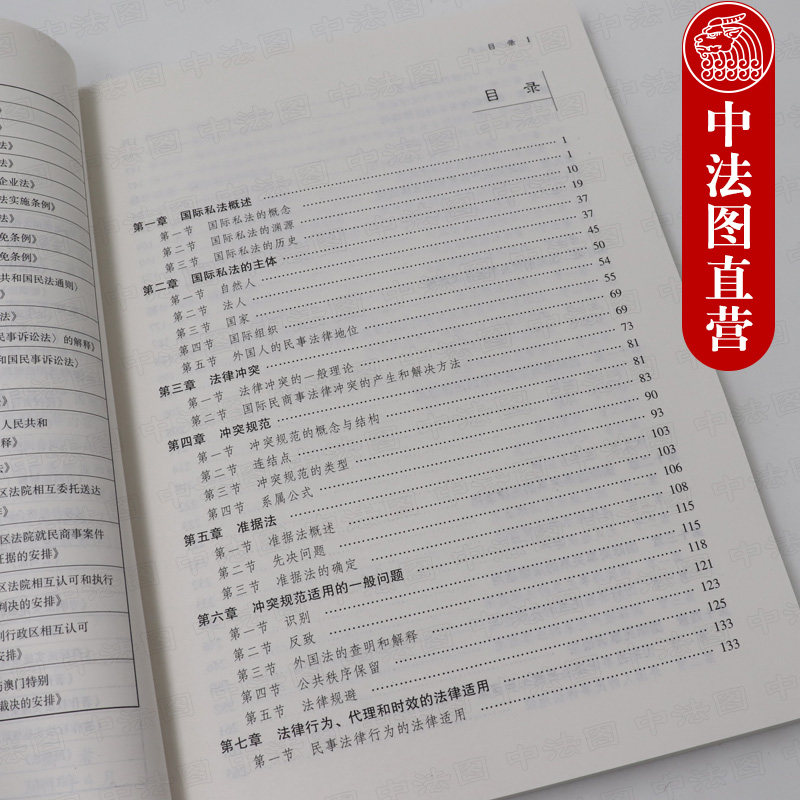 法》
法》
企业法》
法实施条例》
法》
免条例》
免条例》
共和国民法通则〉
法》
民事诉讼法〉的解释》
和国民事诉讼法〉
人民共和
释》
法》
区法院相互委托送达
排》
区法院就民商事案件
证据的安排》
区法院相互认可和执行
判决的安排》
别行政区相互认可
安排》
与澳门特别
裁决的安排》
目 录 1
目 录
第一章 国际私法概述 1
第一节 国际私法的概念 1
第二节 国际私法的渊源 10
第三节 国际私法的历史 19
第二章 国际私法的主体 37
第一节 自然人 37
第二节 法人 45
第三节 国家 50
第四节 国际组织 54
第五节 外国人的民事法律地位 55
第三章 法律冲突 69
第一节 法律冲突的一般理论 69
第二节 国际民商事法律冲突的产生和解决方法 73
第四章 冲突规范 81
第一节 冲突规范的概念与结构 81
第二节 连结点 83
第三节 冲突规范的类型 90
第四节 系属公式 93
第五章 准据法 103
第一节 准据法概述 103
第二节 先决问题 106
第三节 准据法的确定 108
第六章 冲突规范适用的一般问题 115
第一节 识别 115
第二节 反致 118
第三节 外国法的查明和解释 121
第四节 公共秩序保留 123
第五节 法律规避 125
第七章 法律行为、代理和时效的法律适用 133
第一节 民事法律行为的法律适用 133
中法图直营
中法图